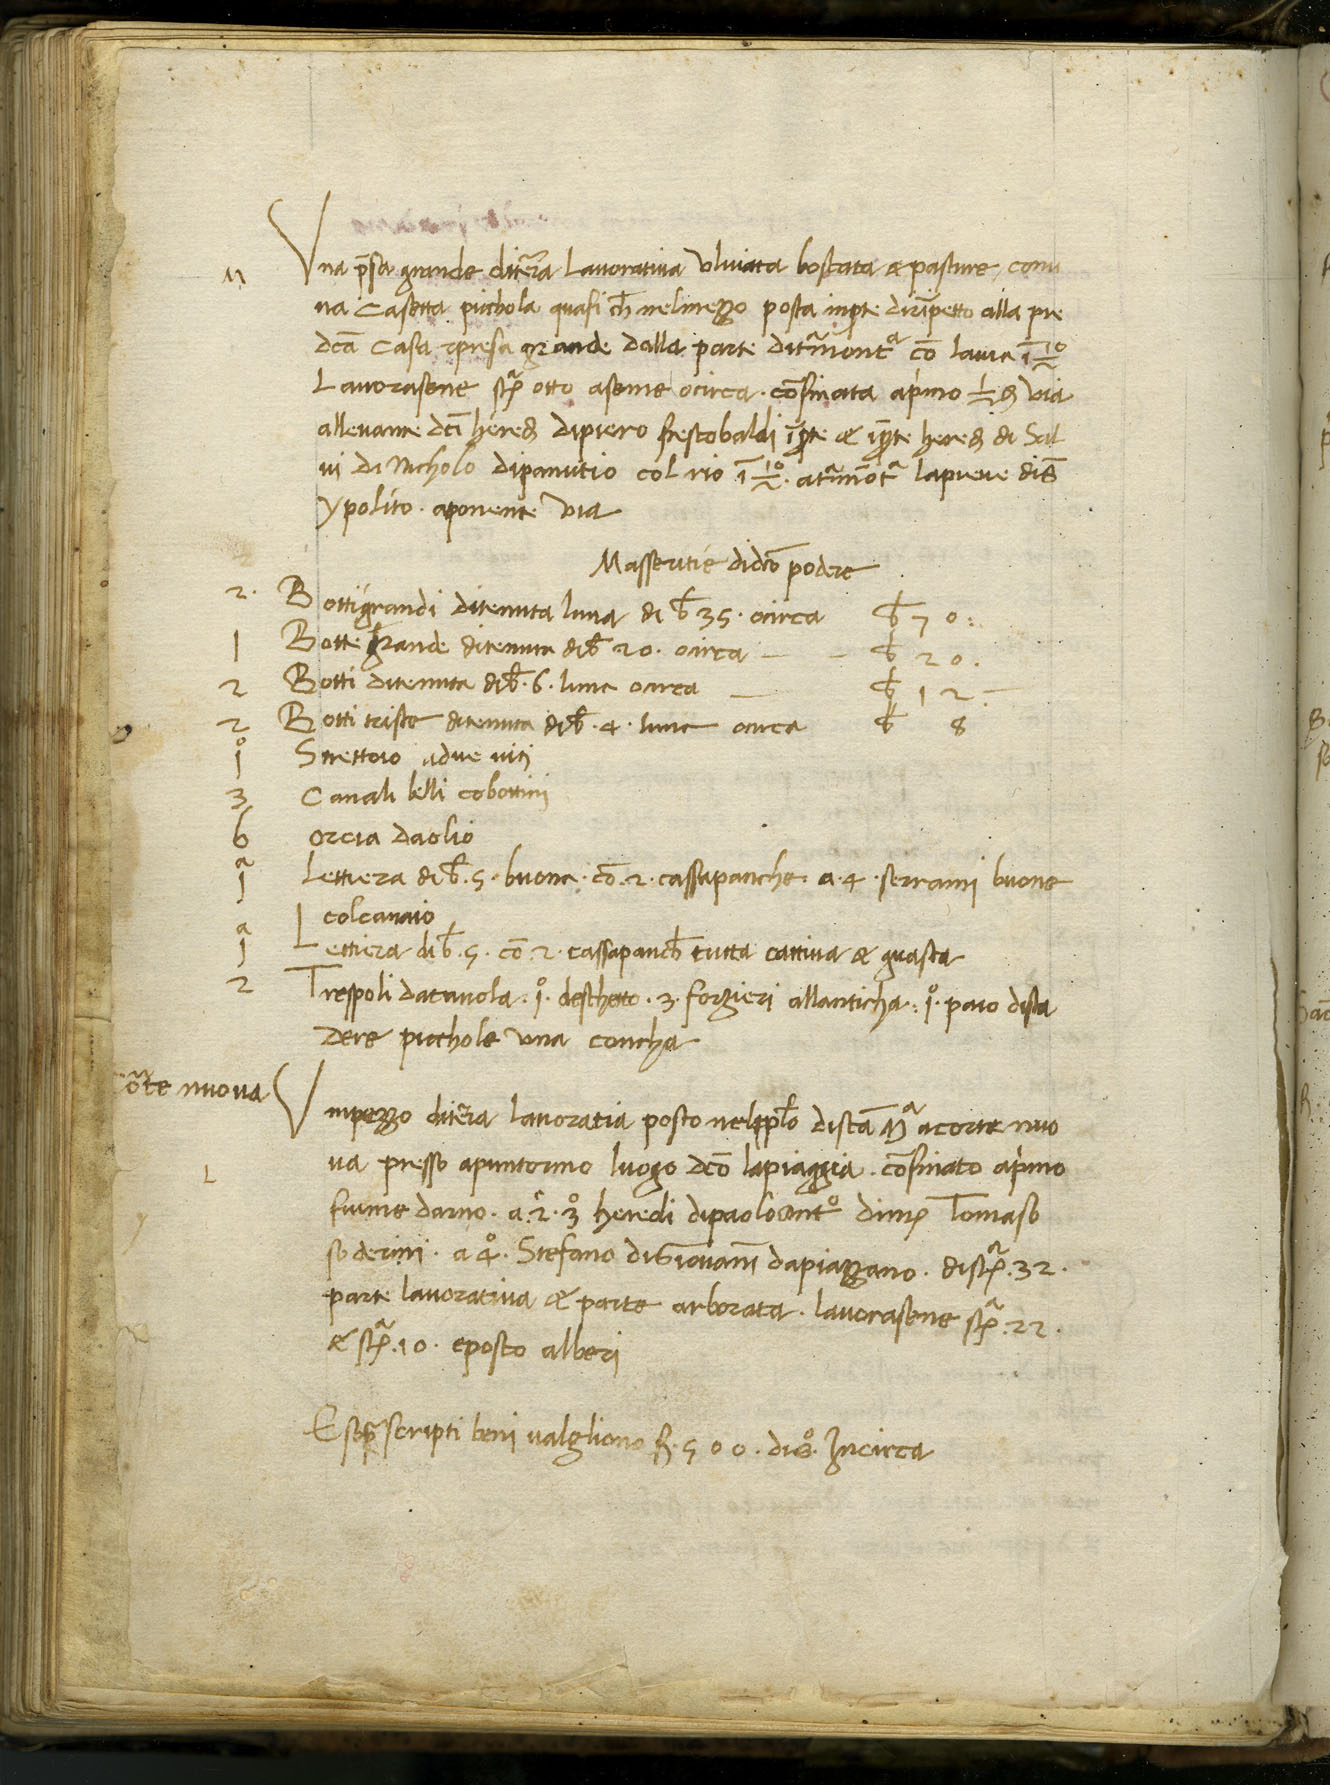 M
Una p̄sa grande diterra Lavorativa Ulivata boscata & pasture, conu
na Casetta picchola quasi ch̄ nelmezzo posta inparte dirimpetto alla pre
dcā Casa & presa grande dalla parte ditramontᵃ cō lavia ī 1⁰
Lavorasene stᵃ otto aseme ocirca. cōfinata aprimo via
allevante dcī hered dipiero frescobaldi ī parte & ī parte hered di Sal
vi di Nicholo dipanutio col rio ī 1⁰. atramōtᵃ lapieve dis
Ypolito. aponente via
Masseritie didcō podere
2. Botti grandi ditenuta luna di b 35. ocirca b 70:
1 Botte grande ditenuta di b 20. ocirca — b 20.
2 Botti ditenuta di b. 6. luna ocirca — b 12.
2 Botti triste ditenuta di b. 4. luna ocirca b 8
1⁰ Strettoio adue viti
3 Canali belli cobottini
6 orcia daolio
1ᵃ Lettiera di b. 5. buona. cō. 2. cassapanche. a. 4. serrami buone
colcanaio
1ᵃ Lettiera di b. 5. cō. 2. cassapanch tutta cattiva & guasta
2 Trespoli datavola. 1⁰. deschetto. 3. forzieri allanticha. 1⁰. paio dista
dere picchole una concha
Corte nuova
Unpezzo diterra lavoratia posto nelpplo discā Mᵃ acorte nuo
va presso apuntormo luogo dcō lapiaggia. cōfinato aprimo
L
fiume darno. a. 2. 3⁰ heredi dipaoloantᵒ dimes Tomaso
soderini. a 4⁰. Stefano diGiovanī dapiazzano. distᵃ. 32.
parte lavorativa & parte arborata. lavorasene stᵃ. 22.
& stᵃ. 10. eposto alberi
E sopᵃscripti beni valgliono F. 500. dis⁰. Incirca